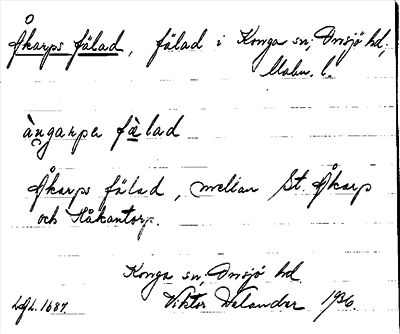 Åkarps fälad, fälad i Konga sn, Onsjö hd,
Malm. l.
àngarpa fälad
Åkarps fälad, mellan St. Åkarp
och Håkantorp.
Konga sn, Onsjö hd.
LGL. 1687 Viktor Welander 1936.